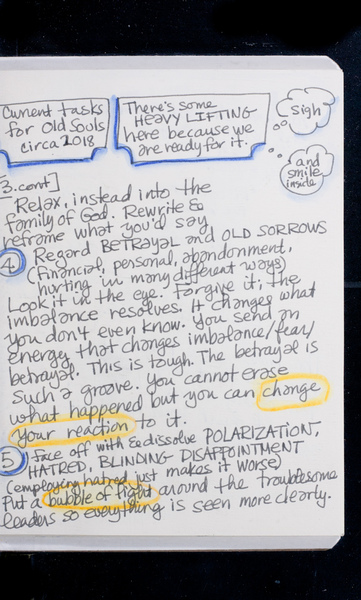 Current tasks
for Old Souls
circa 2018
There's some
HEAVY LIFTING
here because we
are ready for it.
Sigh
and
smile
inside
3.cont]
Relax, instead into the
family of God. Rewrite &
reframe what you'd say
4 Regard BETRAYAL and OLD SORROWS
(Financial, personal, abandonment,
hurting in many different ways)
Look it in the eye. Forgive it; the
imbalance resolves. It changes what
you don't even know. You send an
energy that changes imbalance/fear/
betrayal. This is tough. The betrayal is
such a groove. You cannot erase
what happened but you can change
your reaction to it.
5 Face off with & dissolve POLARIZATION,
HATRED, BLINDING DISAPPOINTMENT
(employing hatred just makes it worse)
Put a bubble of light around the troublesome
leaders so everything is seen more clearly.